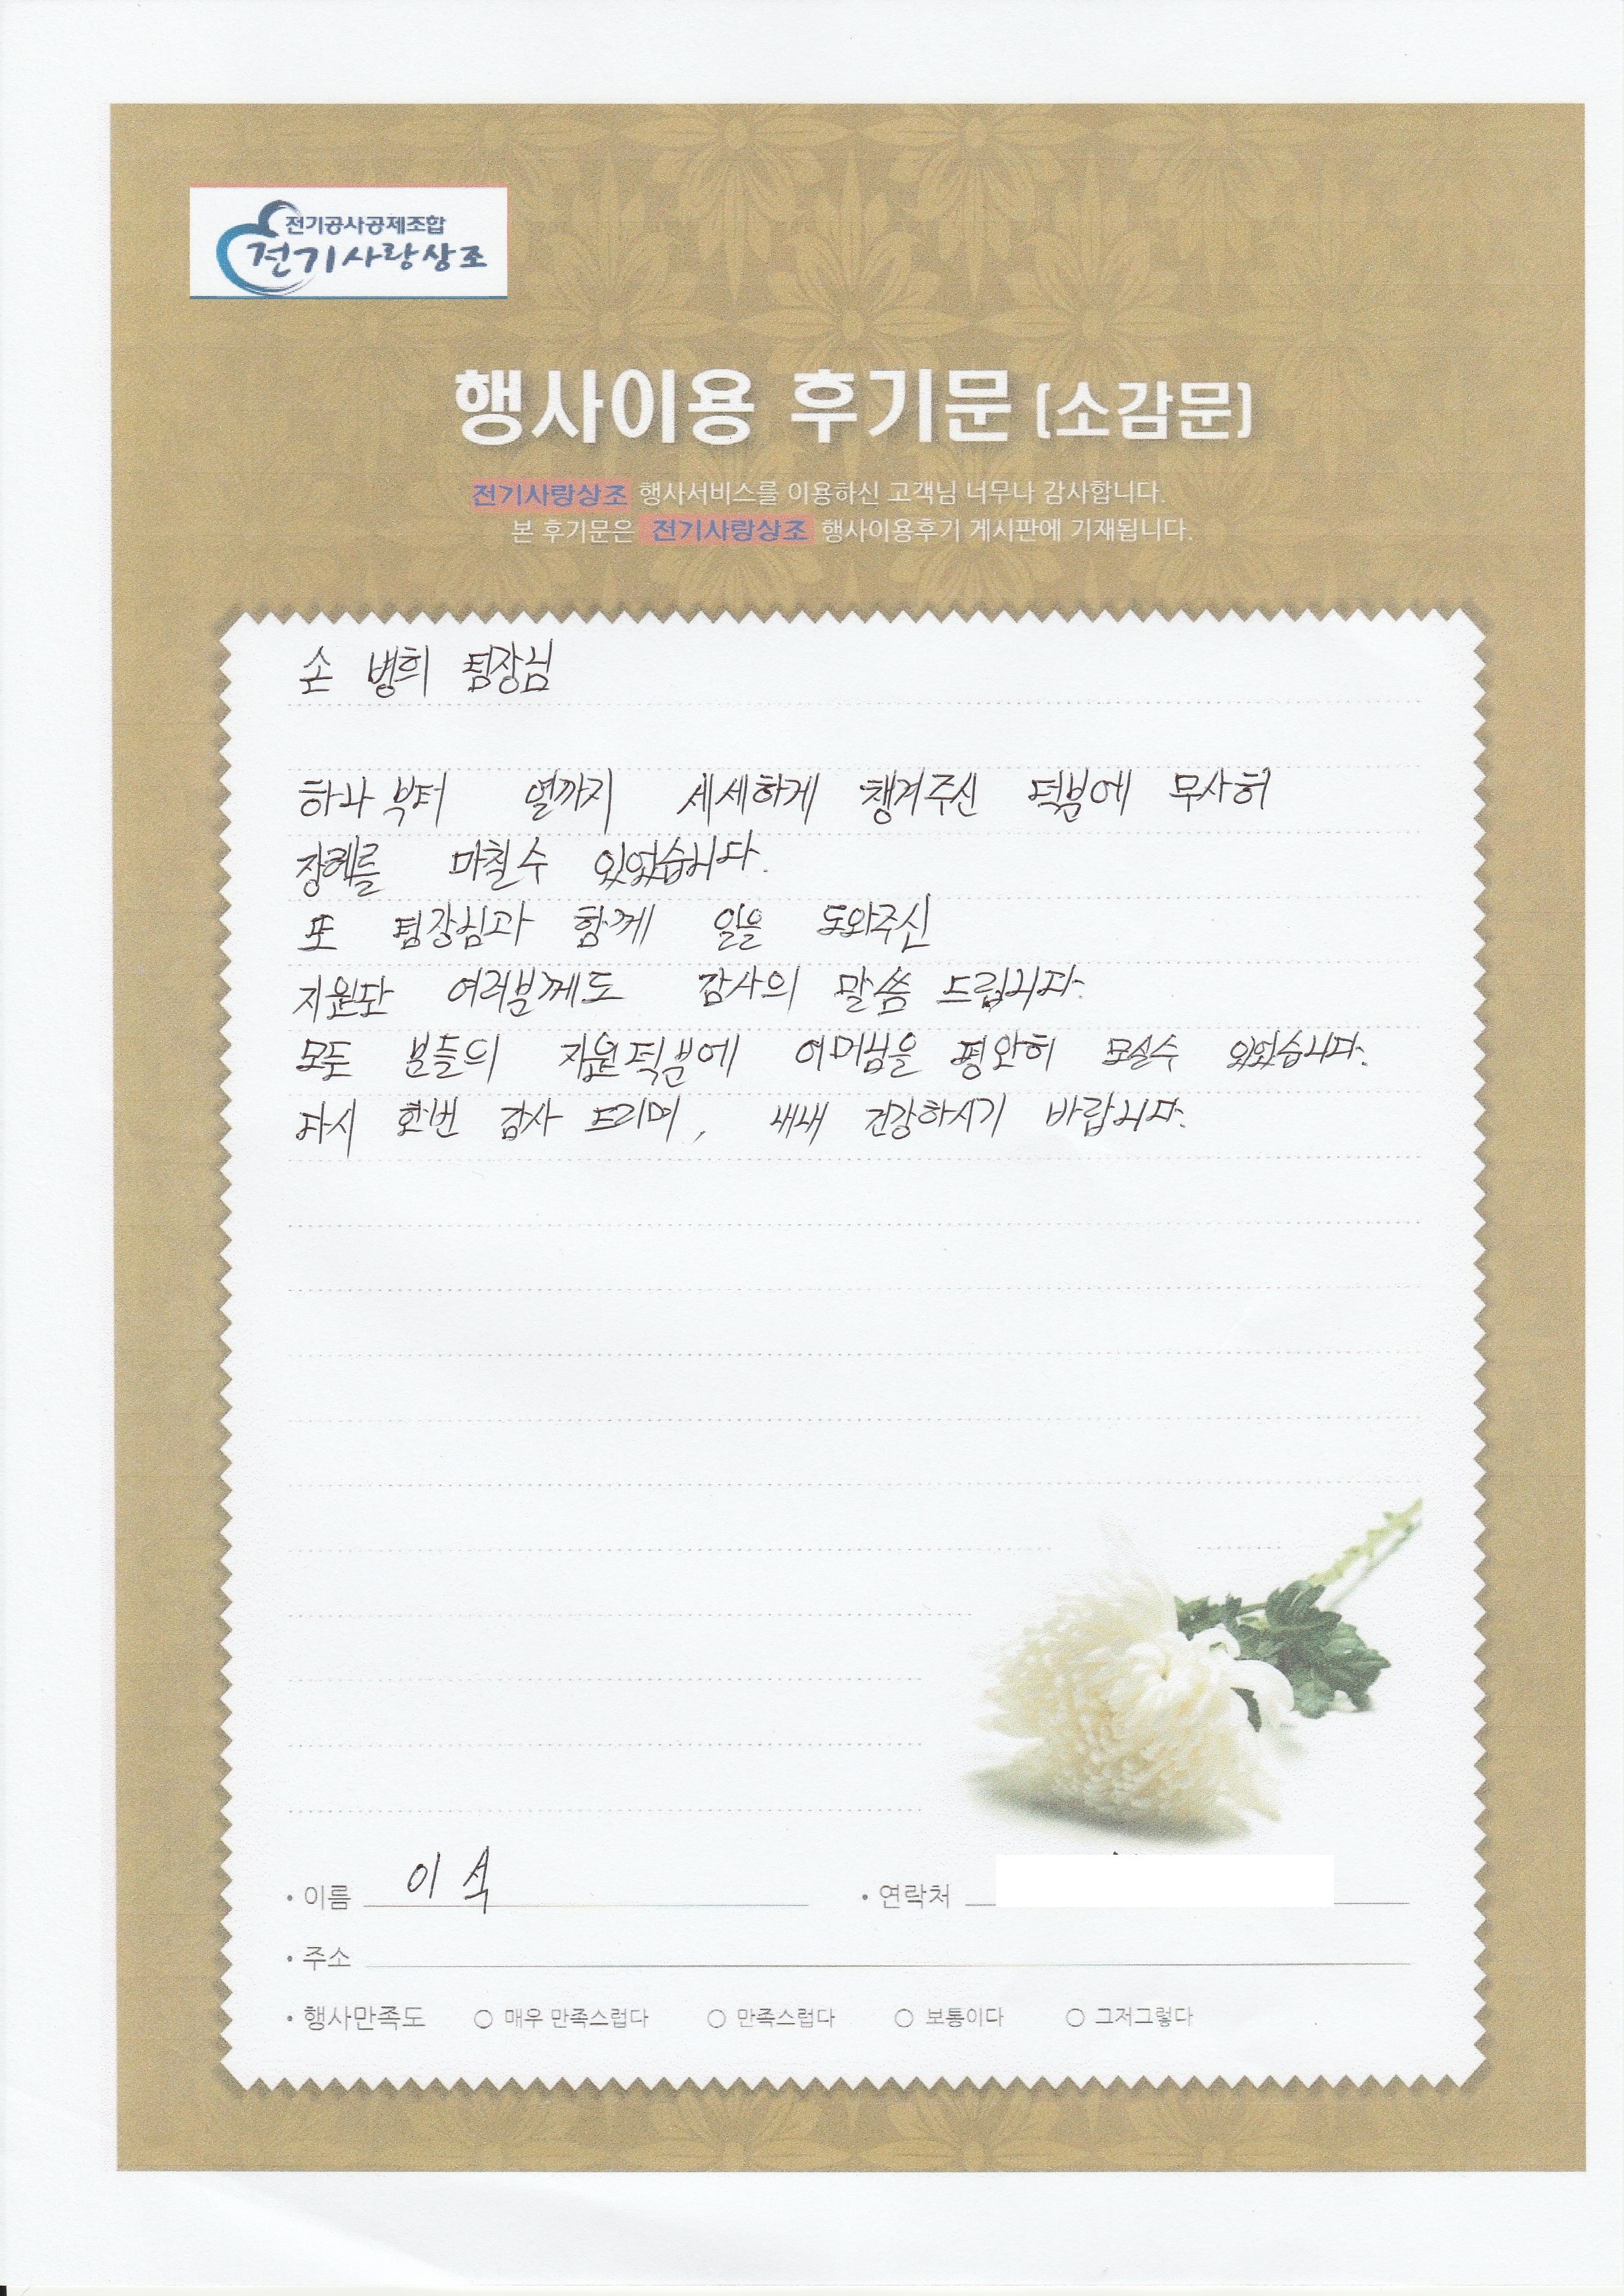 전기공사공제조합
전기사랑상조
행사이용 후기문 (소감문)
전기사랑상조 행사서비스를 이용하신 고객님 너무나 감사합니다.
본 후기문은 전기사랑상조 행사이용후기 게시판에 기재됩니다.
손 병희 팀장님
하나부터 열까지 세세하게 챙겨주신 덕분에 무사히
장례를 마칠수 있었습니다.
또 팀장님과 함께 일을 도와주신
지원단 여러분께도 감사의 말씀 드립니다.
모든 분들의 지원덕분에 어머님을 평안히 모실수 있었습니다.
다시 한번 감사 드리며, 내내 건강하시기 바랍니다.
• 이름 이 석 • 연락처
• 주소
• 행사만족도 ○ 매우 만족스럽다 ○ 만족스럽다 ○ 보통이다 ○ 그저그렇다